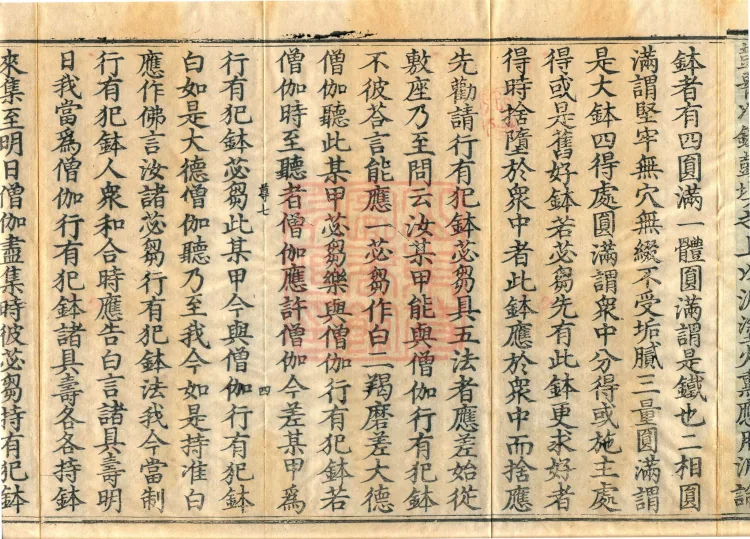 鉢者有四圓滿一體圓滿謂是鐵也二相圓
滿謂堅牢無穴無綴不受垢膩三量圓滿謂
是大鉢四得處圓滿謂衆中分得或施主處
得或是舊好鉢若苾芻先有此鉢更求好者
得時捨墮於衆中者此鉢應於衆中而捨應
先勸請行有犯鉢苾芻具五法者應差始從
敷座乃至問云汝某甲能與僧伽行有犯鉢
不彼荅言能應一苾芻作白二羯磨差大德
僧伽聽此某甲苾芻樂與僧伽行有犯鉢若
僧伽時至聽者僧伽應許僧伽今差某甲爲
尊七
四
行有犯鉢苾芻此某甲今與僧伽行有犯鉢
白如是大德僧伽聽乃至我今如是持准白
應作佛言汝諸苾芻行有犯鉢法我今當制
行有犯鉢人衆和合時應告白言諸具壽明
日我當爲僧伽行有犯鉢諸具壽各各持鉢
來集至明日僧伽盡集時彼苾芻持有犯鉢